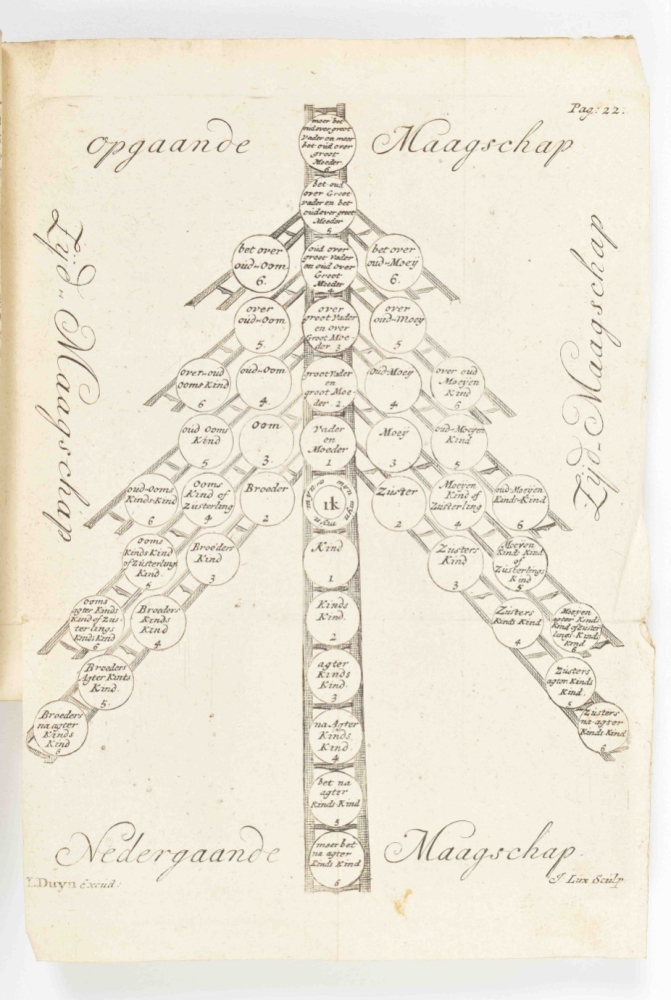 Pag: 22.
opgaande Maagschap
Zijd-Maagschap
Zijd-Maagschap
meer bet
oud over groot
vader en meer
bet oud over
groot
Moeder
6
bet oud
over Groot
vader en bet
oud over groot
Moeder
5
bet over
oud-Oom
6.
oud over
groot Vader
en oud over
Groot
Moeder
4
bet over
oud-Moey
6.
over
oud-Oom
5
over
groot Vader
en over
Groot Moe-
der 3
over
oud-Moey
5
over-oud
ooms Kind
6
oud-Oom
4.
groot Vader
en
groot Moe-
der. 2
oud-Moey
4
over oud
Moeyen
Kind
6
oud Ooms
Kind
5
Oom
3
Vader
en
Moeder
1
Moey
3
oud-Moeyen
Kind
5
oud-Ooms
Kinds-Kind
6
Ooms
Kind of
Zusterling
4
Broeder
2
ik
Zuster
2
Moeyen
Kind of
Zusterling
4
oud Moeyen
Kinds-Kind
6
ooms
Kinds Kind
of Zusterlings
Kind
5
Broeders
Kind
3
Kind
1
Zusters
Kind
3
Moeyen
Kinds Kind
of
Zusterlings
Kind
5
ooms
agter Kinds
Kind of Zus-
terlings
Kinds Kind
6
Broeders
Kinds
Kind
4
Kinds
Kind
2
Zusters
Kinds Kind
4
Moeyen
agter Kinds
Kind of Zuster
lings Kinds
Kind
6
Broeders
Agter Kints
Kind.
5.
agter
Kinds
Kind
3
Zusters
agter Kinds
Kind.
5
Broeders
na agter
Kinds
Kind
6
na Agter
Kinds
Kind.
4
Zusters
na agter
Kinds Kind
6
bet na
agter
Kinds Kind
5
meer bet
na agter
Kinds Kind
6
Nedergaande Maagschap.
Duyn Excud:
J. Lux Sculp